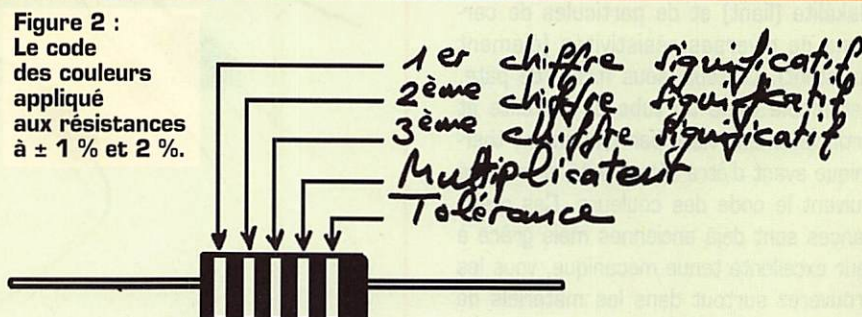 Figure 2 :
Le code
des couleurs
appliqué
aux résistances
à ± 1 % et 2 %.
1er chiffre significatif
2ème chiffre significatif
3ème chiffre significatif
Multiplicateur
Tolérance